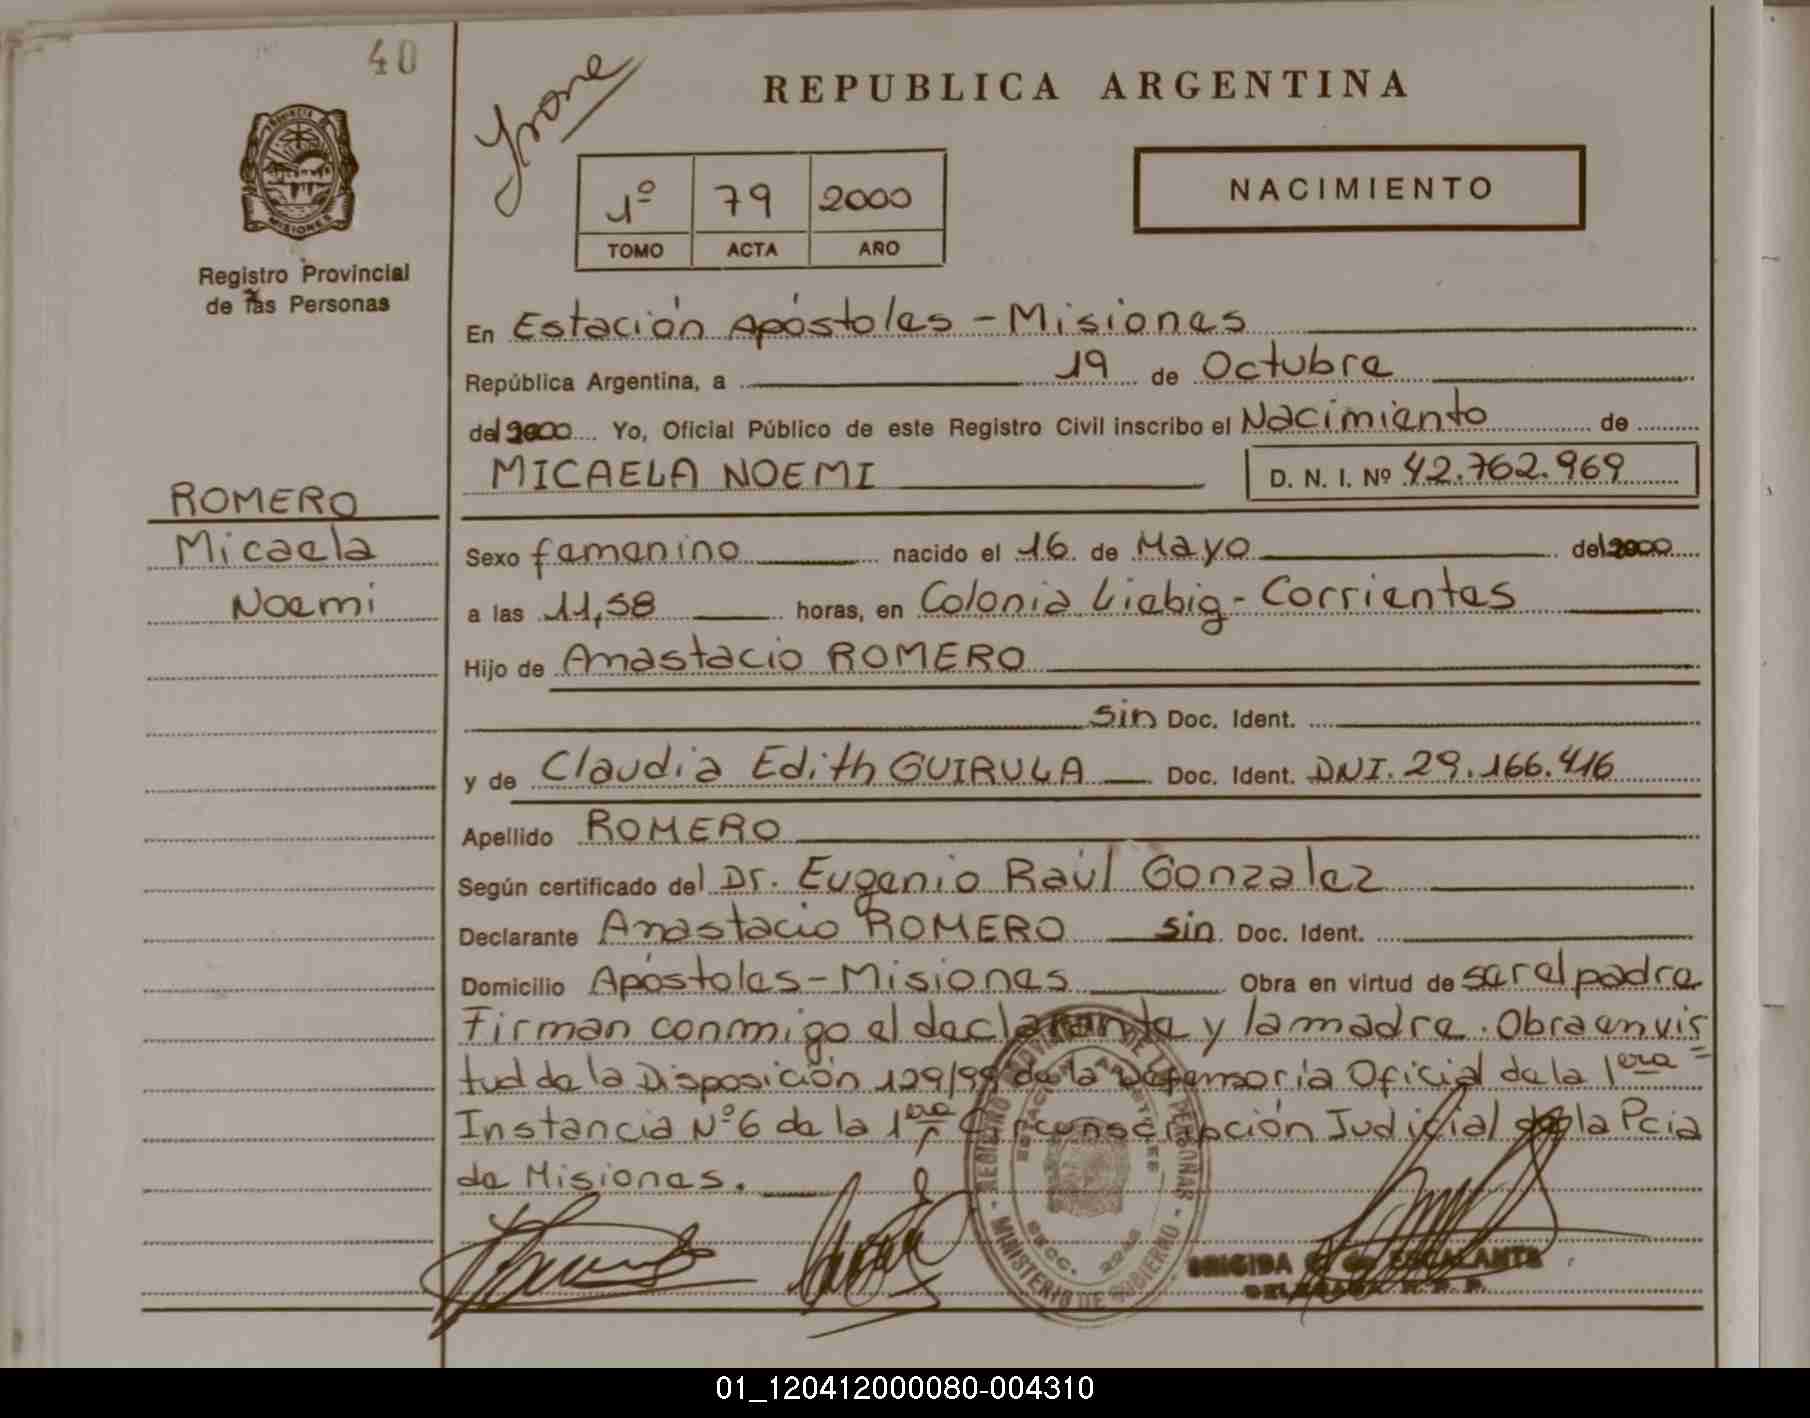 40
Registro Provincial
de las Personas
ROMERO
Micaela
Noemi
Yvone
REPUBLICA ARGENTINA
1º 79 2000
TOMO ACTA AÑO
NACIMIENTO
En Estación Apóstoles - Misiones
República Argentina, a 19 de Octubre
del 2000 Yo, Oficial Público de este Registro Civil inscribo el Nacimiento de
MICAELA NOEMI D. N. I. Nº 42.762.969
Sexo femenino nacido el 16 de Mayo del 2000
a las 11,58 horas, en Colonia Liebig - Corrientes
Hijo de Anastacio ROMERO
sin Doc. Ident.
y de Claudia Edith GUIRULA Doc. Ident. DNI. 29.166.416
Apellido ROMERO
Según certificado del Dr. Eugenio Raúl Gonzalez
Declarante Anastacio ROMERO sin Doc. Ident.
Domicilio Apóstoles - Misiones Obra en virtud de ser el padre
Firman conmigo el declarante y la madre. Obra en vir
tud de la Disposición 129/99 de la Defensoría Oficial de la 1era
Instancia Nº 6 de la 1era Circunscripción Judicial de la Pcia
de Misiones.
REGISTRO PROVINCIAL DE LAS PERSONAS - MINISTERIO DE GOBIERNO -
ESTACION APOSTOLES
SECC.
BRIGIDA G. de ESCALANTE
01_120412000080-004310